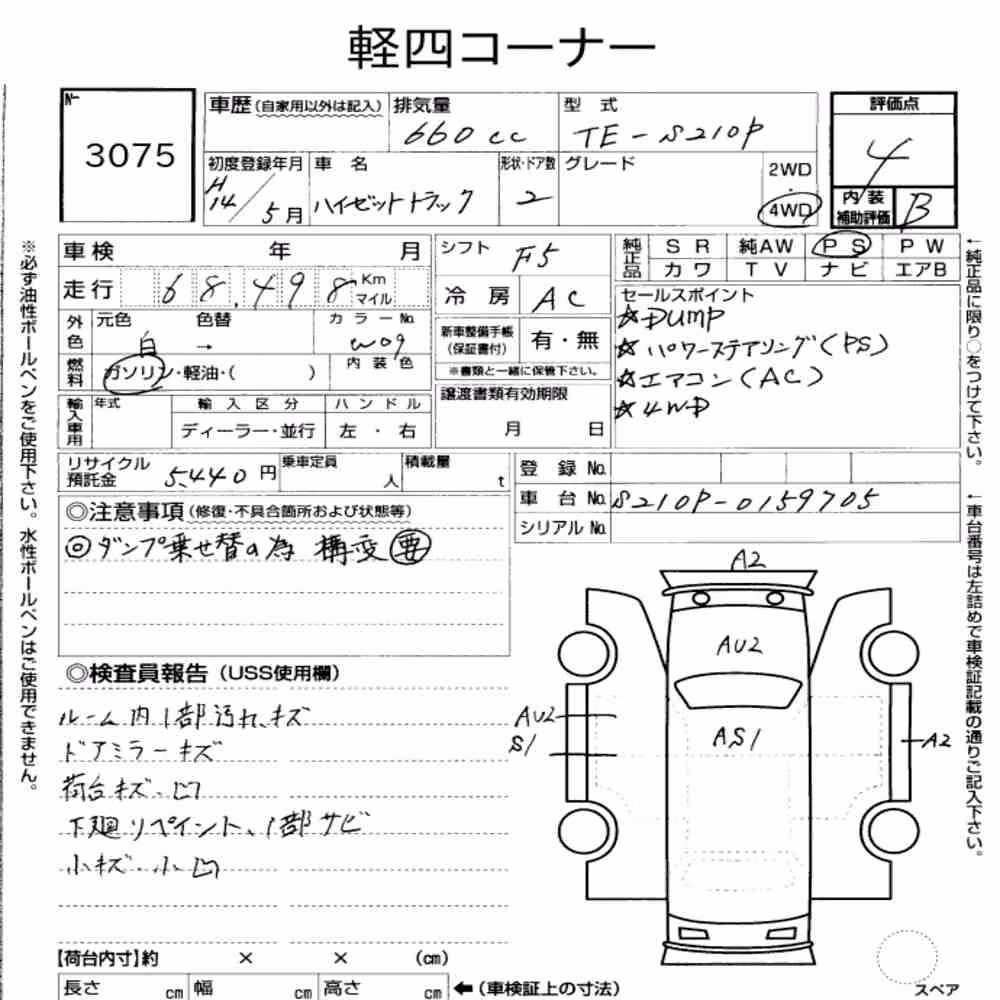 軽四コーナー
№ 3075
車歴(自家用以外は記入) 排気量 660cc
型式 TE-S210P
評価点 4
内装補助評価 B
初度登録年月 H14/5月
車名 ハイゼットトラック
形状・ドア数 2
グレード
2WD・4WD
車検 年 月
走行 68,498 Km マイル
外色 元色 白 色替 → カラーNo. W09
燃料 ガソリン・軽油・( ) 内装色
輸入車用 年式 輸入区分 ハンドル
ディーラー・並行 左・右
シフト F5
冷房 AC
新車整備手帳(保証書付) 有・無
※書類と一緒に保管下さい。
譲渡書類有効期限
月 日
純正品 SR 純AW PS PW
カワ TV ナビ エアB
セールスポイント
☆DUMP
☆パワーステアリング(PS)
☆エアコン(AC)
☆4WD
リサイクル預託金 5,440円
乗車定員 人
積載量 t
登録No.
車台No. S210P-0159705
シリアルNo.
◎注意事項(修復・不具合箇所および状態等)
◎ダンプ乗せ替の為 構変要
◎検査員報告(USS使用欄)
ルーム内1部汚れ、キズ
ドアミラーキズ
荷台キズ・凹
下廻リペイント、1部サビ
小キズ・小凹
A2
AU2
AS1
AU2
S1
A2
スペア
【荷台内寸】約 × × (cm)
長さ cm 幅 cm 高さ cm ←(車検証上の寸法)
※必ず油性ボールペンをご使用下さい。水性ボールペンはご使用できません。
←純正品に限り○をつけて下さい。
←車台番号は左詰めで車検証記載の通りご記入下さい。